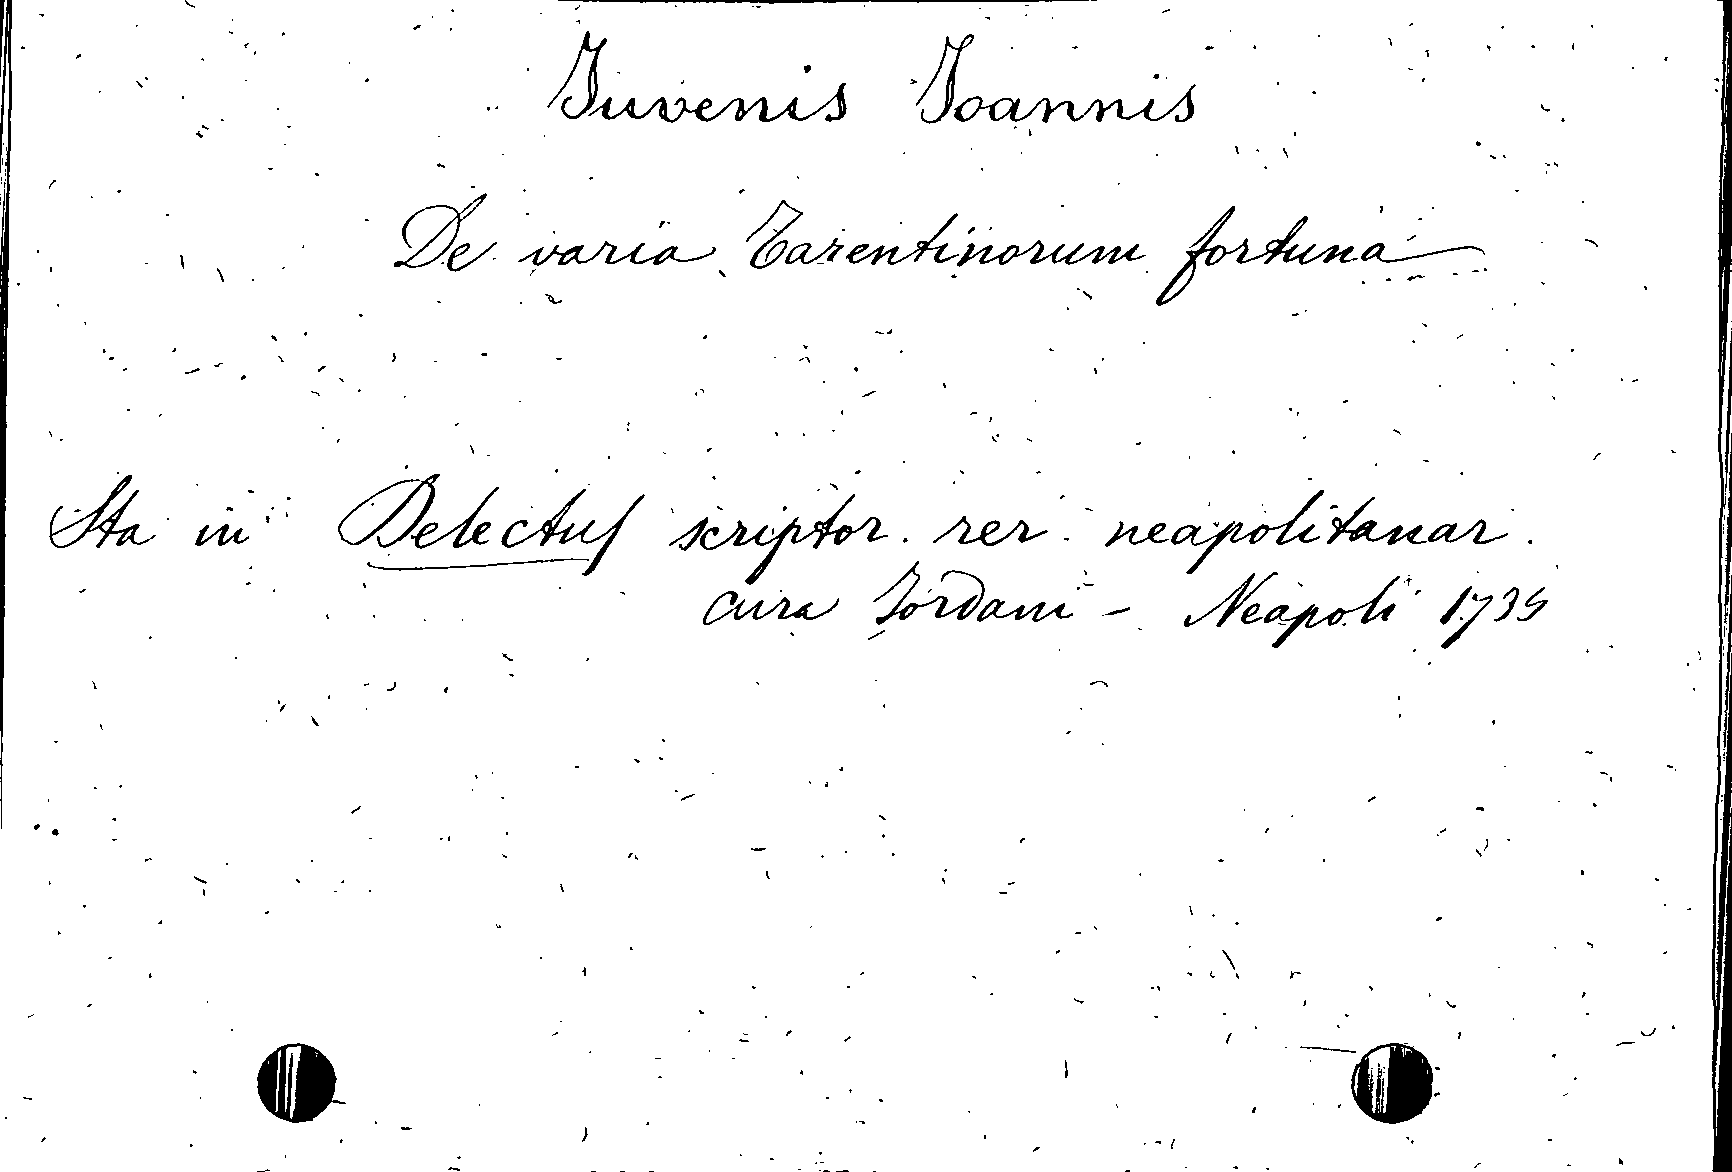 Iuvenis Ioannis
De varia Tarentinorum fortuna
Sta in Delectus scriptor. rer. neapolitanar.
cura Iordani - Neapoli 1735